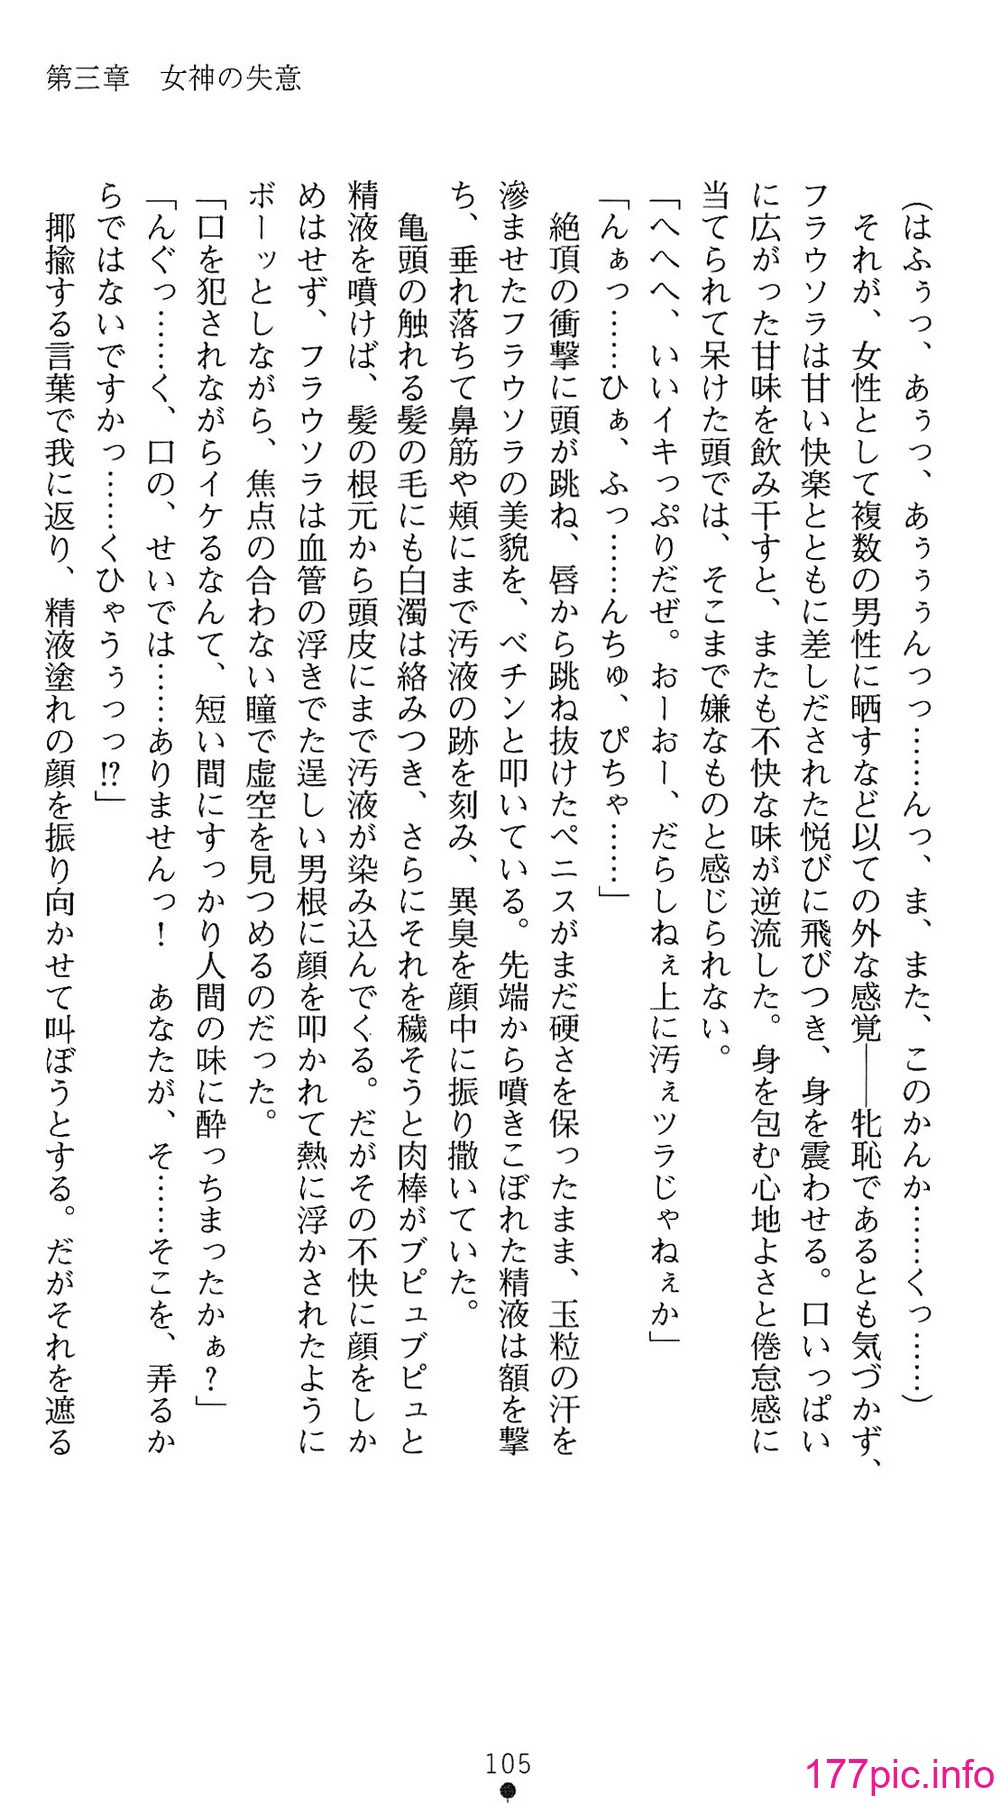 第三章　女神の失意
（はふぅっ、あぅっ、あぅぅぅんっっ……んっ、ま、また、このかんか……くっ……）
　それが、女性として複数の男性に晒すなど以ての外な感覚――牝恥であるとも気づかず、
フラウソラは甘い快楽とともに差しだされた悦びに飛びつき、身を震わせる。口いっぱい
に広がった甘味を飲み干すと、またも不快な味が逆流した。身を包む心地よさと倦怠感に
当てられて呆けた頭では、そこまで嫌なものと感じられない。
「へへへ、いいイキっぷりだぜ。おーおー、だらしねぇ上に汚ぇツラじゃねぇか」
「んぁっ……ひぁ、ふっ……んちゅ、ぴちゃ……」
　絶頂の衝撃に頭が跳ね、唇から跳ね抜けたペニスがまだ硬さを保ったまま、玉粒の汗を
滲ませたフラウソラの美貌を、ベチンと叩いている。先端から噴きこぼれた精液は額を撃
ち、垂れ落ちて鼻筋や頬にまで汚液の跡を刻み、異臭を顔中に振り撒いていた。
　亀頭の触れる髪の毛にも白濁は絡みつき、さらにそれを穢そうと肉棒がブピュブピュと
精液を噴けば、髪の根元から頭皮にまで汚液が染み込んでくる。だがその不快に顔をしか
めはせず、フラウソラは血管の浮きでた逞しい男根に顔を叩かれて熱に浮かされたように
ボーッとしながら、焦点の合わない瞳で虚空を見つめるのだった。
「口を犯されながらイケるなんて、短い間にすっかり人間の味に酔っちまったかぁ？」
「んぐっ……く、口の、せいでは……ありませんっ！　あなたが、そ……そこを、弄るか
らではないですかっ……くひゃうぅっっ⁉」
　揶揄する言葉で我に返り、精液塗れの顔を振り向かせて叫ぼうとする。だがそれを遮る
105
177pic.info